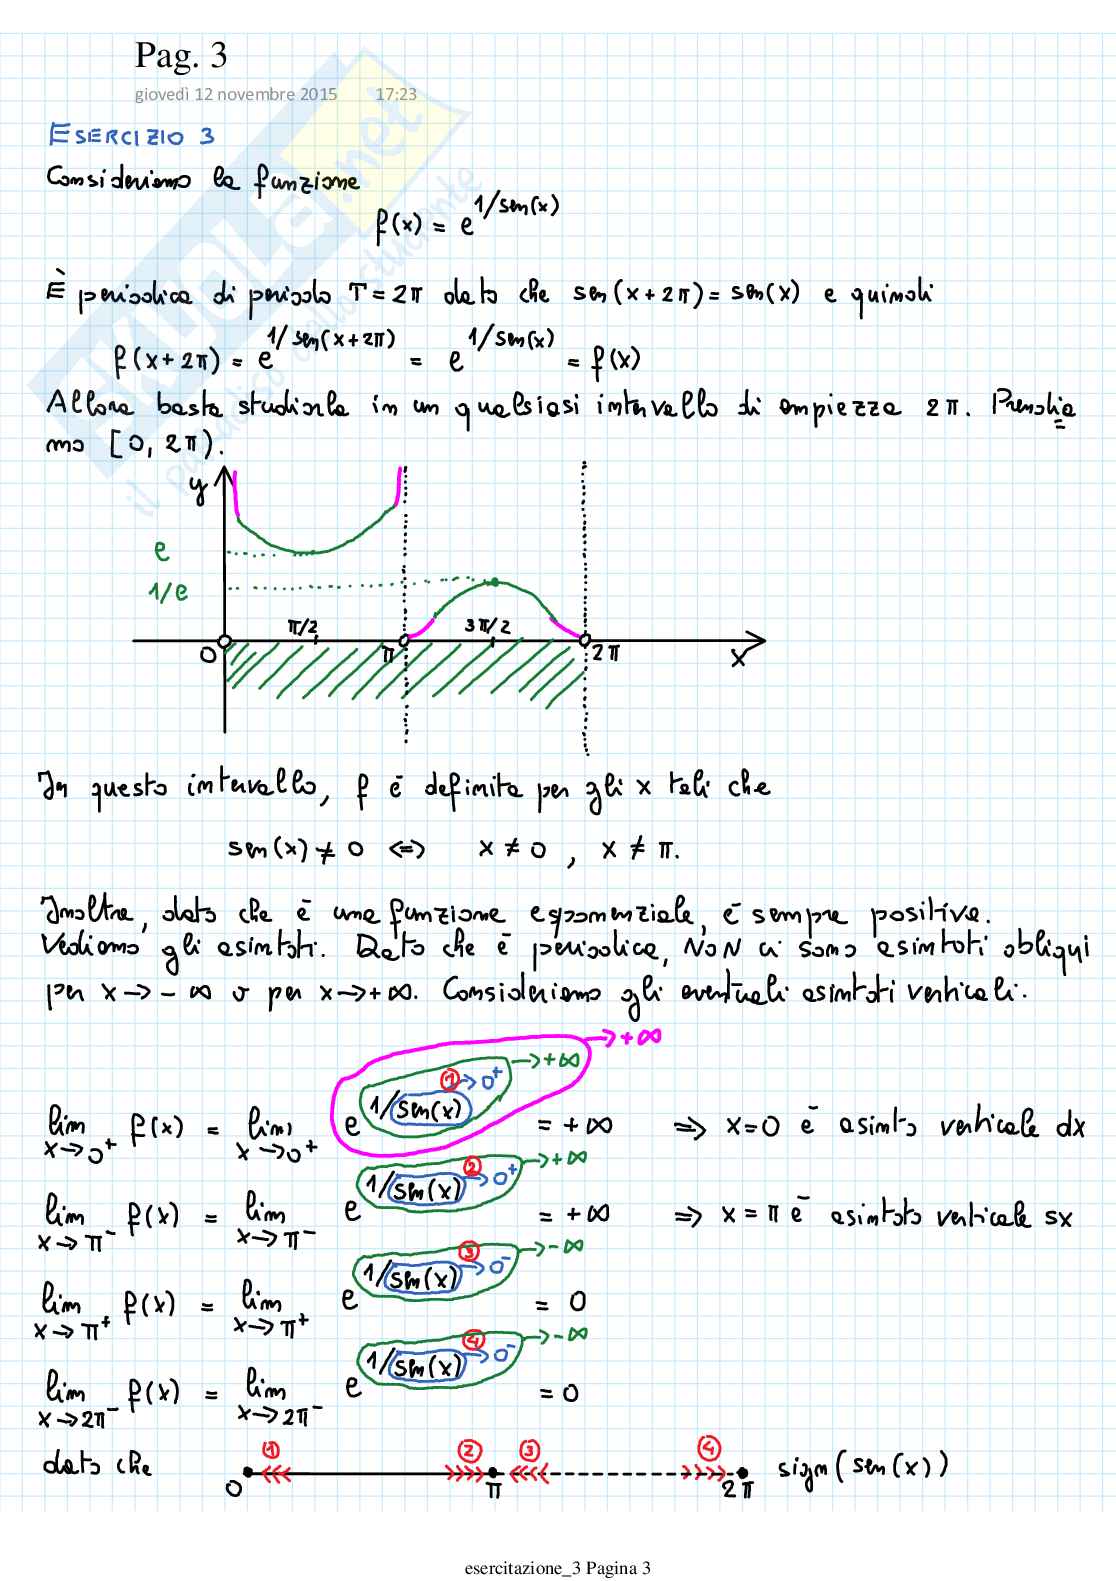 Pag. 3
giovedì 12 novembre 2015 17:23
SKUOLA.net
il paradiso dello studente
ESERCIZIO 3
Consideriamo la funzione
f(x) = e^{1/sen(x)}
È periodica di periodo T = 2π dato che sen(x+2π) = sen(x) e quindi
f(x+2π) = e^{1/sen(x+2π)} = e^{1/sen(x)} = f(x)
Allora basta studiarla in un qualsiasi intervallo di ampiezza 2π. Prendia
mo [0, 2π).
y
e
1/e
π/2 3π/2
0 π 2π x
In questo intervallo, f è definita per gli x tali che
sen(x) ≠ 0 <=> x ≠ 0 , x ≠ π.
Inoltre, dato che è una funzione esponenziale, è sempre positiva.
Vediamo gli asintoti. Dato che è periodica, NON ci sono asintoti obliqui
per x → -∞ o per x → +∞. Consideriamo gli eventuali asintoti verticali.
→ +∞
→ +∞
① → 0⁺
lim x→0⁺ f(x) = lim x→0⁺ e^{1/sen(x)} = +∞ => x=0 è asinto verticale dx
② → 0⁺ → +∞
lim x→π⁻ f(x) = lim x→π⁻ e^{1/sen(x)} = +∞ => x = π è asintoto verticale sx
③ → 0⁻ → -∞
lim x→π⁺ f(x) = lim x→π⁺ e^{1/sen(x)} = 0
④ → 0⁻ → -∞
lim x→2π⁻ f(x) = lim x→2π⁻ e^{1/sen(x)} = 0
① ② ③ ④
dato che sign(sen(x))
0 π 2π
esercitazione_3 Pagina 3